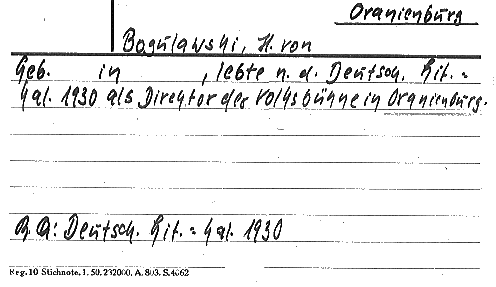 Oranienburg
Bogulawski, H. von
Geb. in , lebte n. d. Deutsch. Lit.=
Kal. 1930 als Direktor der Volksbühne in Oranienburg.
R.A: Deutsch. Lit.=Kal. 1930
Reg. 10 Stichnote. 1. 50. 232000. A. 803. S. 4662